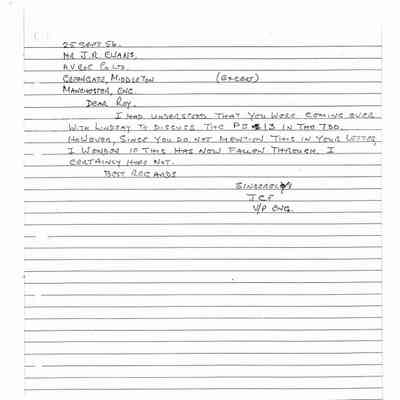 25 SEPT 56.
MR J.R. EWANS,
AVROE Co LTD.
GREENGATE, MIDDLETON (EXCERPT)
MANCHESTER, ENG.
DEAR ROY,
I HAD UNDERSTOOD THAT YOU WERE COMING OVER
WITH LINDSAY TO DISCUSS THE PS 13 IN THE 720.
HOWEVER, SINCE YOU DO NOT MENTION THIS IN YOUR LETTER,
I WONDER IF THIS HAS NOW FALLEN THROUGH. I
CERTAINLY HOPE NOT.
BEST REGARDS
SINCERELY
JCF
V/P ENG.